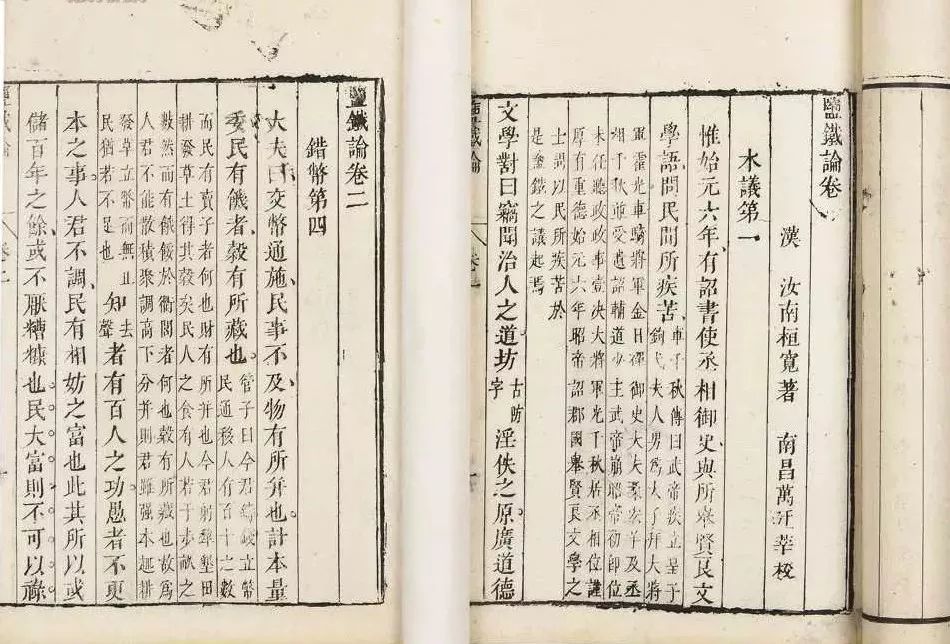 鹽鐵論卷
漢 汝南桓寬著 南昌萬汗莘校
木議第一
惟始元六年有詔書使丞相御史與所舉賢良文
學語問民間所疾苦
車千秋傳曰武帝疾立皇子
鉤弋夫人男爲太子拜大將
軍霍光車騎將軍金日磾御史大夫桑弘羊及丞
相千秋並受遺詔輔道少主武帝崩昭帝初即位
未任聽政政事壹決大將軍光千秋居丞相位謹
厚有重德始元六年昭帝詔郡國舉賢良文學之
士問以民所疾苦於
是鹽鐵之議起焉
文學對曰竊聞治人之道坊古防字淫佚之原廣道德
鹽鐵論 卷
鹽鐵論卷二
錯幣第四
大夫曰交幣通施民事不及物有所并也計本量
委民有饑者穀有所藏也
管子曰今君鑄錢立幣
民通移人有百十之數
而民有賣子者何也財有所并也今君躬犂墾田
耕發草土得其穀矣民人之食有人若干步畝之
數然而有餓餒於衢閭者何也穀有所藏也故爲
人君不能散積聚調高下分并則君雖强本趣耕
發草立幣而無止
民猶若不足也
知去聲者有百人之功愚者不更
本之事人君不調民有相妨之富也此其所以或
儲百年之餘或不厭糟糠也民大富則不可以祿
鹽鐵論 卷二